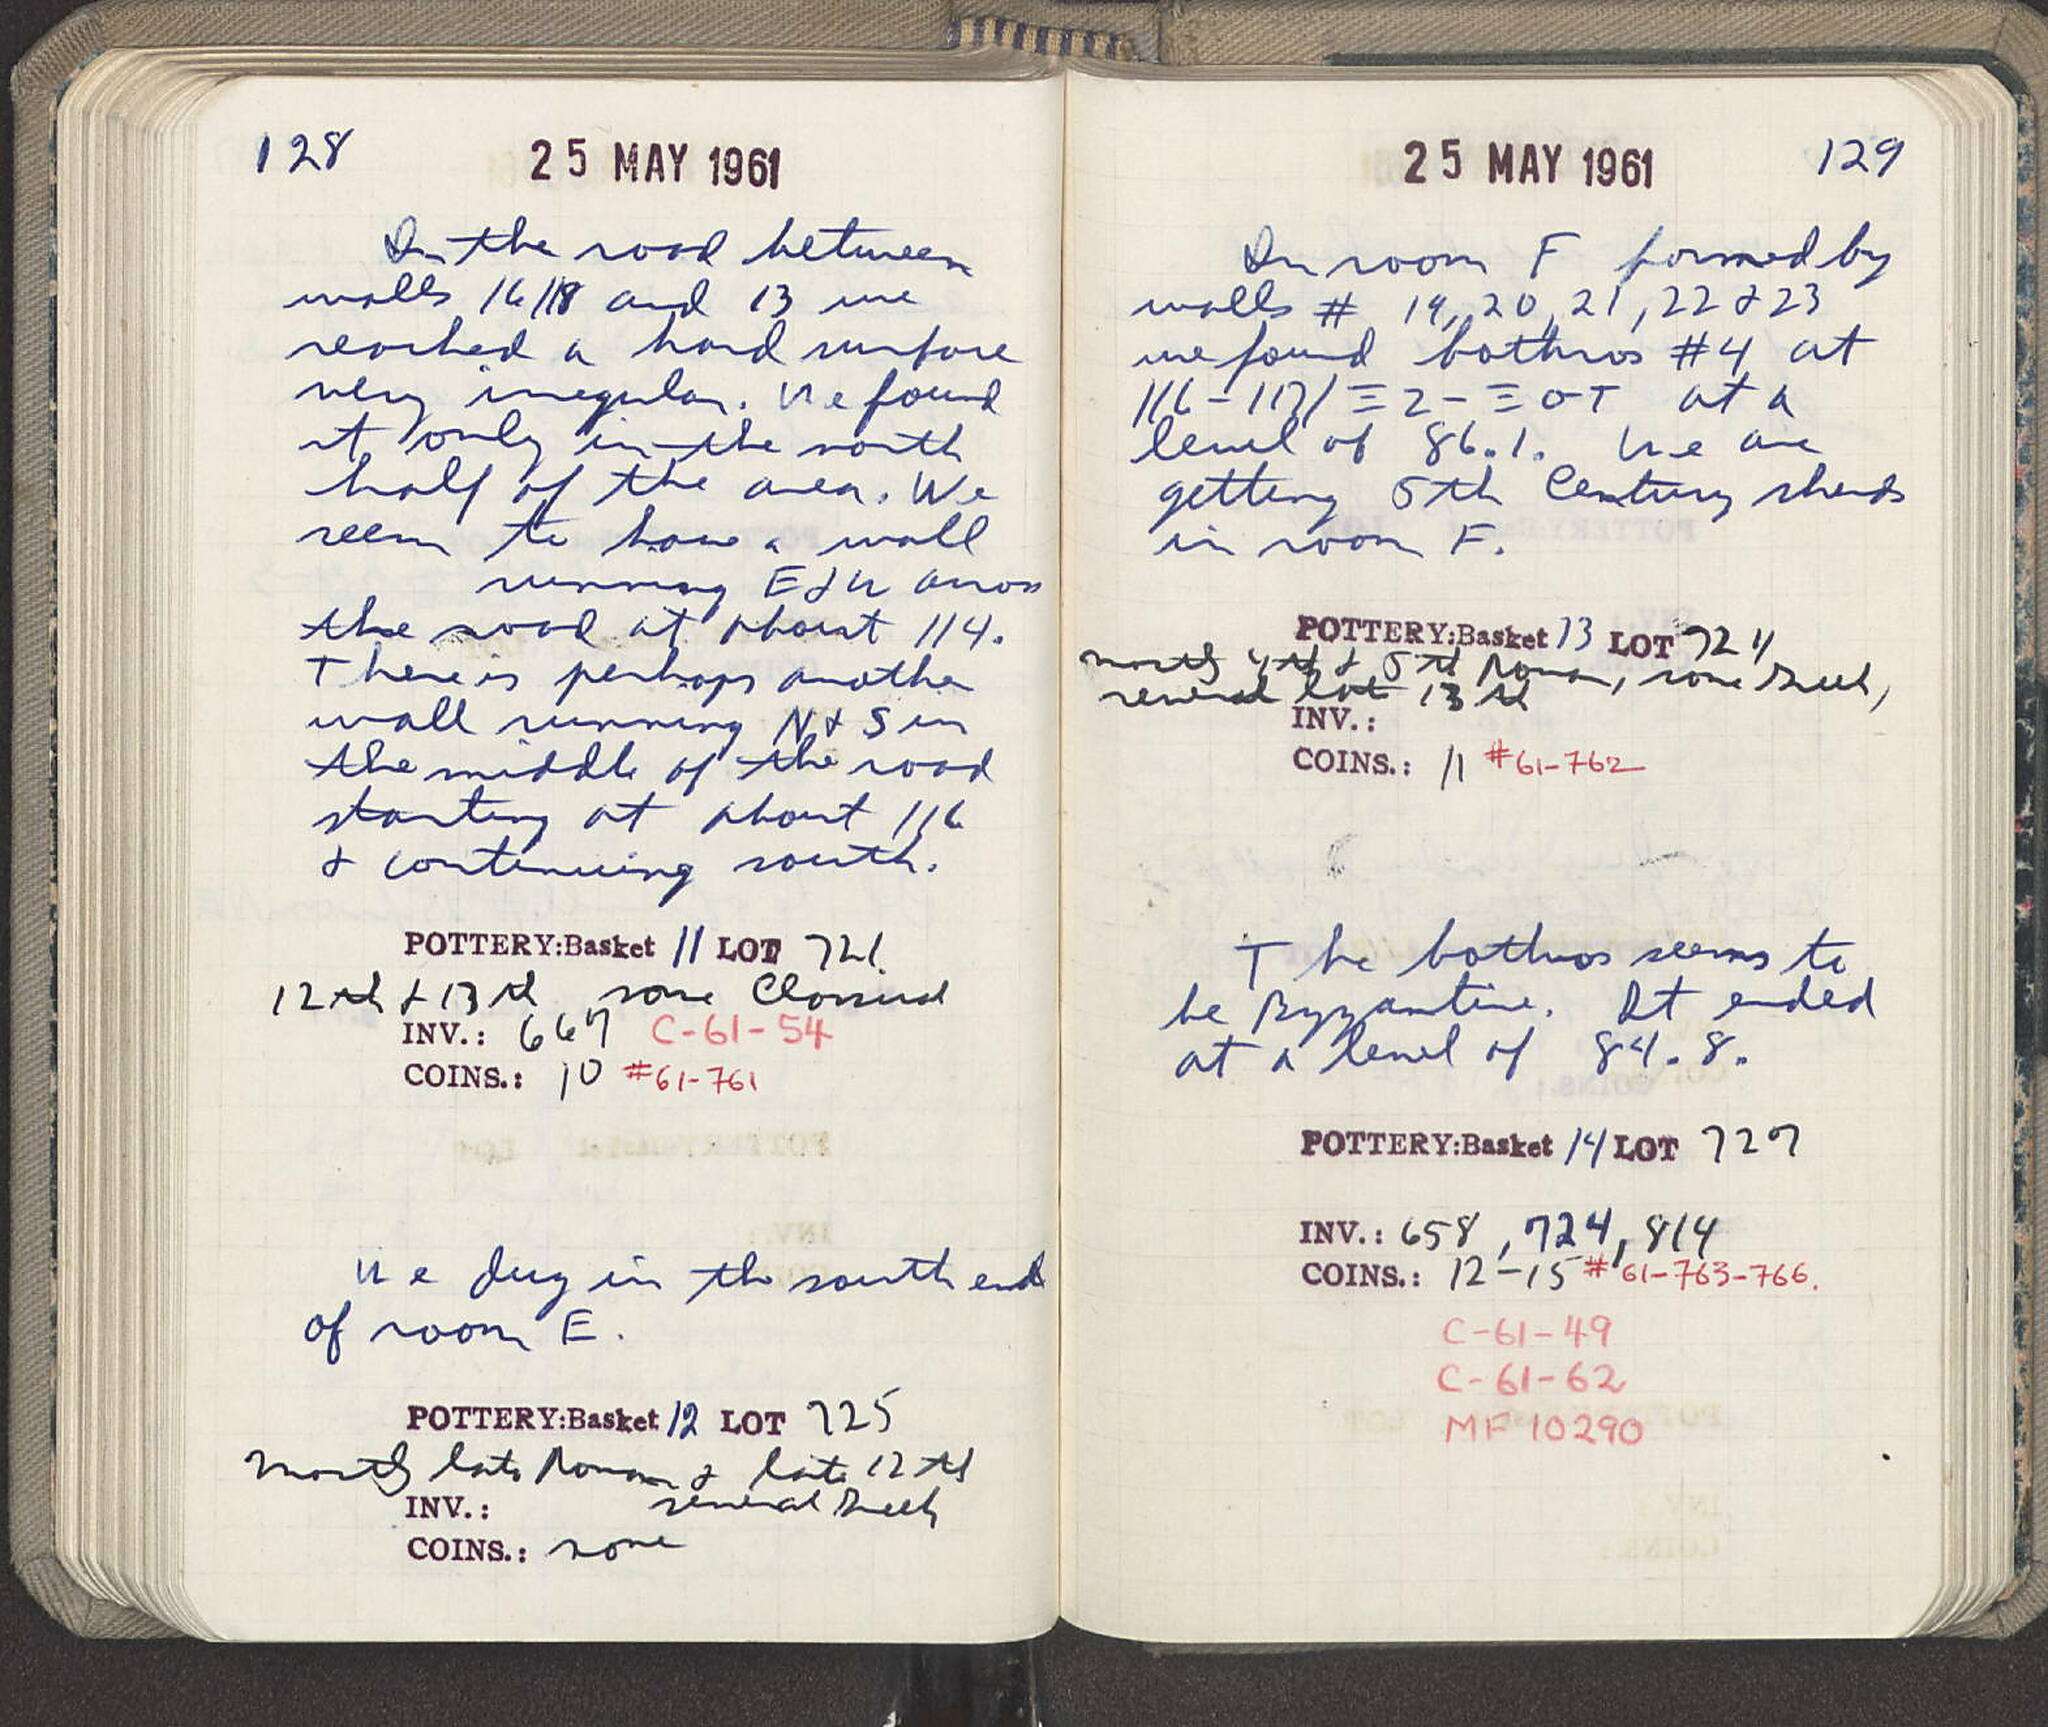 128
25 MAY 1961
In the road between
walls 16/18 and 13 we
reached a hard surface
very irregular. We found
it only in the north
half of the area. We
seem to have a wall
running E & W across
the road at about 114.
There is perhaps another
wall running N & S in
the middle of the road
starting at about 116
& continuing south.
POTTERY:Basket 11 LOT 721.
12th & 13th some Classical
INV.: 667 C-61-54
COINS.: 10 #61-761
We dug in the south end
of room E.
POTTERY:Basket 12 LOT 725
mostly late Roman & late 12th
INV.: several Greek
COINS.: none
25 MAY 1961
129
In room F formed by
walls # 19, 20, 21, 22 & 23
we found bothros #4 at
116-117/Ξ2-ΞΟΤ at a
level of 86.1. We are
getting 5th Century sherds
in room F.
POTTERY:Basket 13 LOT
mostly 4th & 5th Roman, some Greek,
several late 13th
INV.:
COINS.: 11 #61-762
The bothros seems to
be Byzantine. It ended
at a level of 84.8.
POTTERY:Basket 14 LOT 727
INV.: 658, 724, 814
COINS.: 12-15 # 61-763-766.
C-61-49
C-61-62
MF 10290